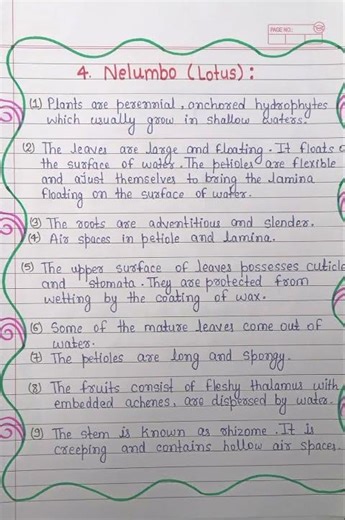 PAGE NO.:
4. Nelumbo (Lotus) :
(1) Plants are perennial, anchored hydrophytes
which usually grow in shallow waters.
(2) The leaves are large and floating. It floats o
the surface of water. The petioles are flexible
and ajust themselves to bring the lamina
floating on the surface of water.
(3) The roots are adventitious and slender.
(4) Air spaces in petiole and lamina.
(5) The upper surface of leaves possesses cuticle
and stomata. They are protected from
wetting by the coating of wax.
(6) Some of the mature leaves come out of
water.
(7) The petioles are long and spongy.
(8) The fruits consist of fleshy thalamus with
embedded achenes, are dispersed by water.
(9) The stem is known as rhizome. It is
creeping and contains hollow air spaces.